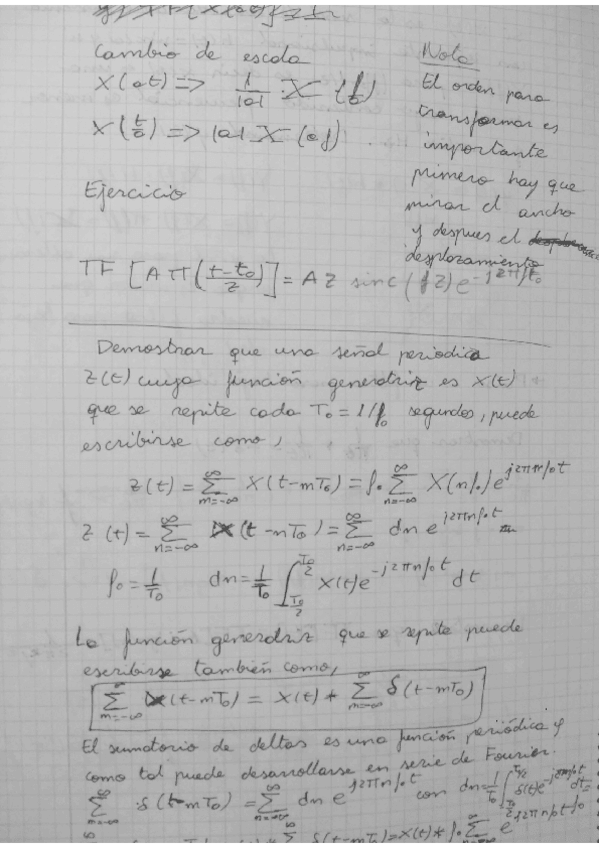 Cambio de escala
X(at) => 1/|a| · X(f/a)
X(t/a) => |a| X(af)
Nota
El orden para
transformar es
importante
primero hay que
mirar el ancho
y despues el
desplazamiento
Ejercicio
TF [A π((t-t₀)/Z)] = A Z sinc(fZ) e^(-j2πf t₀)
Demostrar que una señal periodica
Z(t) cuya función generatriz es X(t)
que se repite cada T₀ = 1/f₀ segundos, puede
escribirse como,
Z(t) = ∑_(m=-∞)^∞ X(t-mT₀) = f₀ ∑_(n=-∞)^∞ X(nf₀) e^(j2πnf₀t)
Z(t) = ∑_(n=-∞)^∞ X(t-nT₀) = ∑_(n=-∞)^∞ dn e^(j2πnf₀t)
f₀ = 1/T₀ dn = 1/T₀ ∫_(T₀/2)^(T₀/2) X(t) e^(-j2πnf₀t) dt
La función generatriz que se repite puede
escribirse también como,
∑_(m=-∞)^∞ X(t-mT₀) = X(t) * ∑_(m=-∞)^∞ δ(t-mT₀)
El sumatorio de deltas es una función periódica y
como tal puede desarrollarse en serie de Fourier.
∑_(m=-∞)^∞ δ(t-mT₀) = ∑_(n=-∞)^∞ dn e^(j2πnf₀t) con dn = 1/T₀ ∫_(T₀/2)^(T₀/2) δ(t) e^(-j2πnf₀t) dt = f₀
∑ δ(t-mT₀) = X(t) * f₀ ∑ e^(j2πnf₀t)